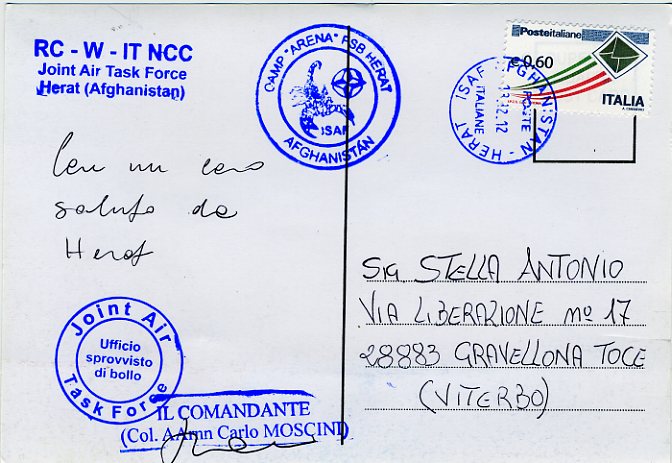 RC - W - IT NCC
Joint Air Task Force
Herat (Afghanistan)
CAMP "ARENA" FSB HERAT
ISAF
AFGHANISTAN
Posteitaliane
€ 0,60
ITALIA
HERAT ISAF AFGHANISTAN
POSTE
ITALIANE
12.12
un caro
saluto da
Herat
Sig STELLA ANTONIO
VIA LIBERAZIONE n° 17
28883 GRAVELLONA TOCE
(VITERBO)
Joint Air
Ufficio
sprovvisto
di bollo
Task Force
IL COMANDANTE
(Col. AArnn Carlo MOSCINI)